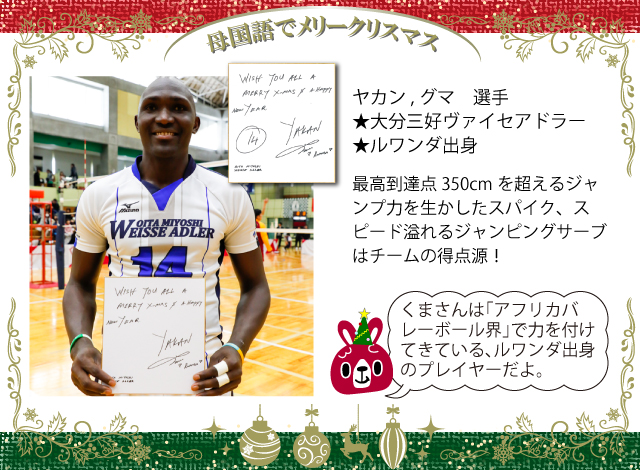 母国語でメリークリスマス
WISH YOU ALL A
MERRY X-MAS & A HAPPY
NEW YEAR
14
YAKAN
OITA MIYOSHI
WEISSE ADLER
ヤカン , グマ　選手
★大分三好ヴァイセアドラー
★ルワンダ出身
最高到達点 350cm を超えるジャ
ンプ力を生かしたスパイク、ス
ピード溢れるジャンピングサーブ
はチームの得点源！
MIZUNO
OITA MIYOSHI
WEISSE ADLER
14
WISH YOU ALL A
MERRY X-MAS & A HAPPY
NEW YEAR
YAKAN
くまさんは「アフリカバ
レーボール界」で力を付け
てきている、ルワンダ出身
のプレイヤーだよ。